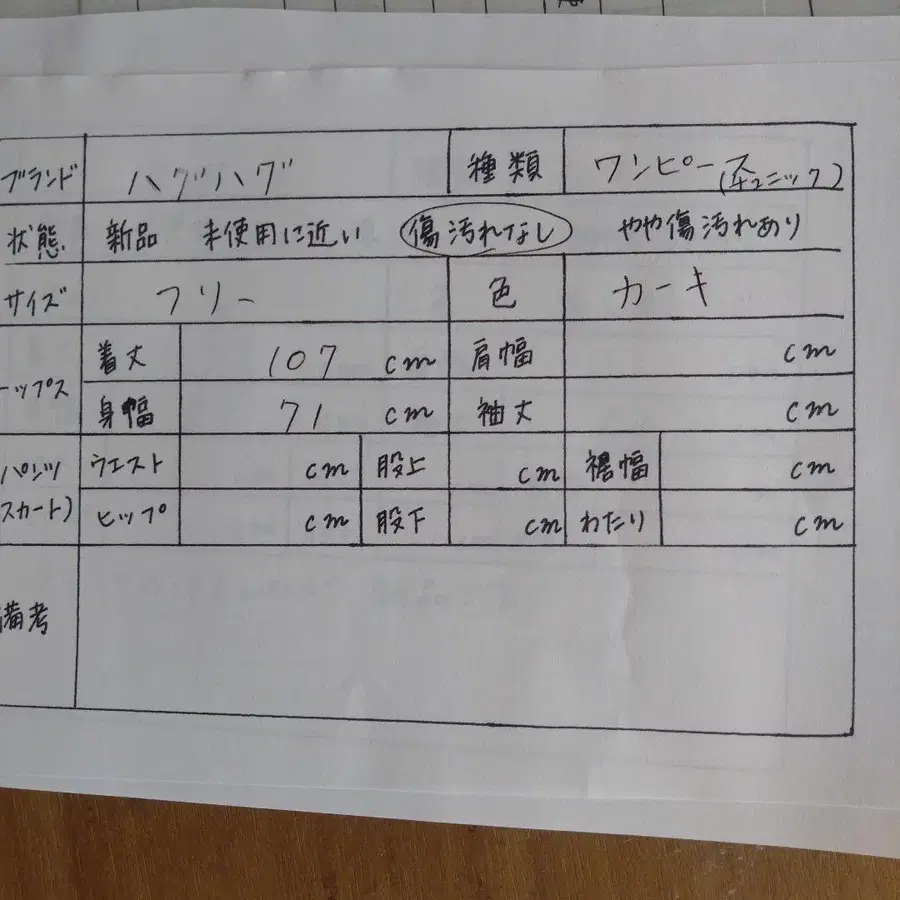 ブランド ハグハグ 種類 ワンピース
(チュニック)
状態 新品 未使用に近い 傷汚れなし やや傷汚れあり
サイズ フリー 色 カーキ
着丈 107 cm 肩幅 cm
ップス
身幅 71 cm 袖丈 cm
パンツ ウエスト cm 股上 cm 裾幅 cm
スカート) ヒップ cm 股下 cm わたり cm
備考